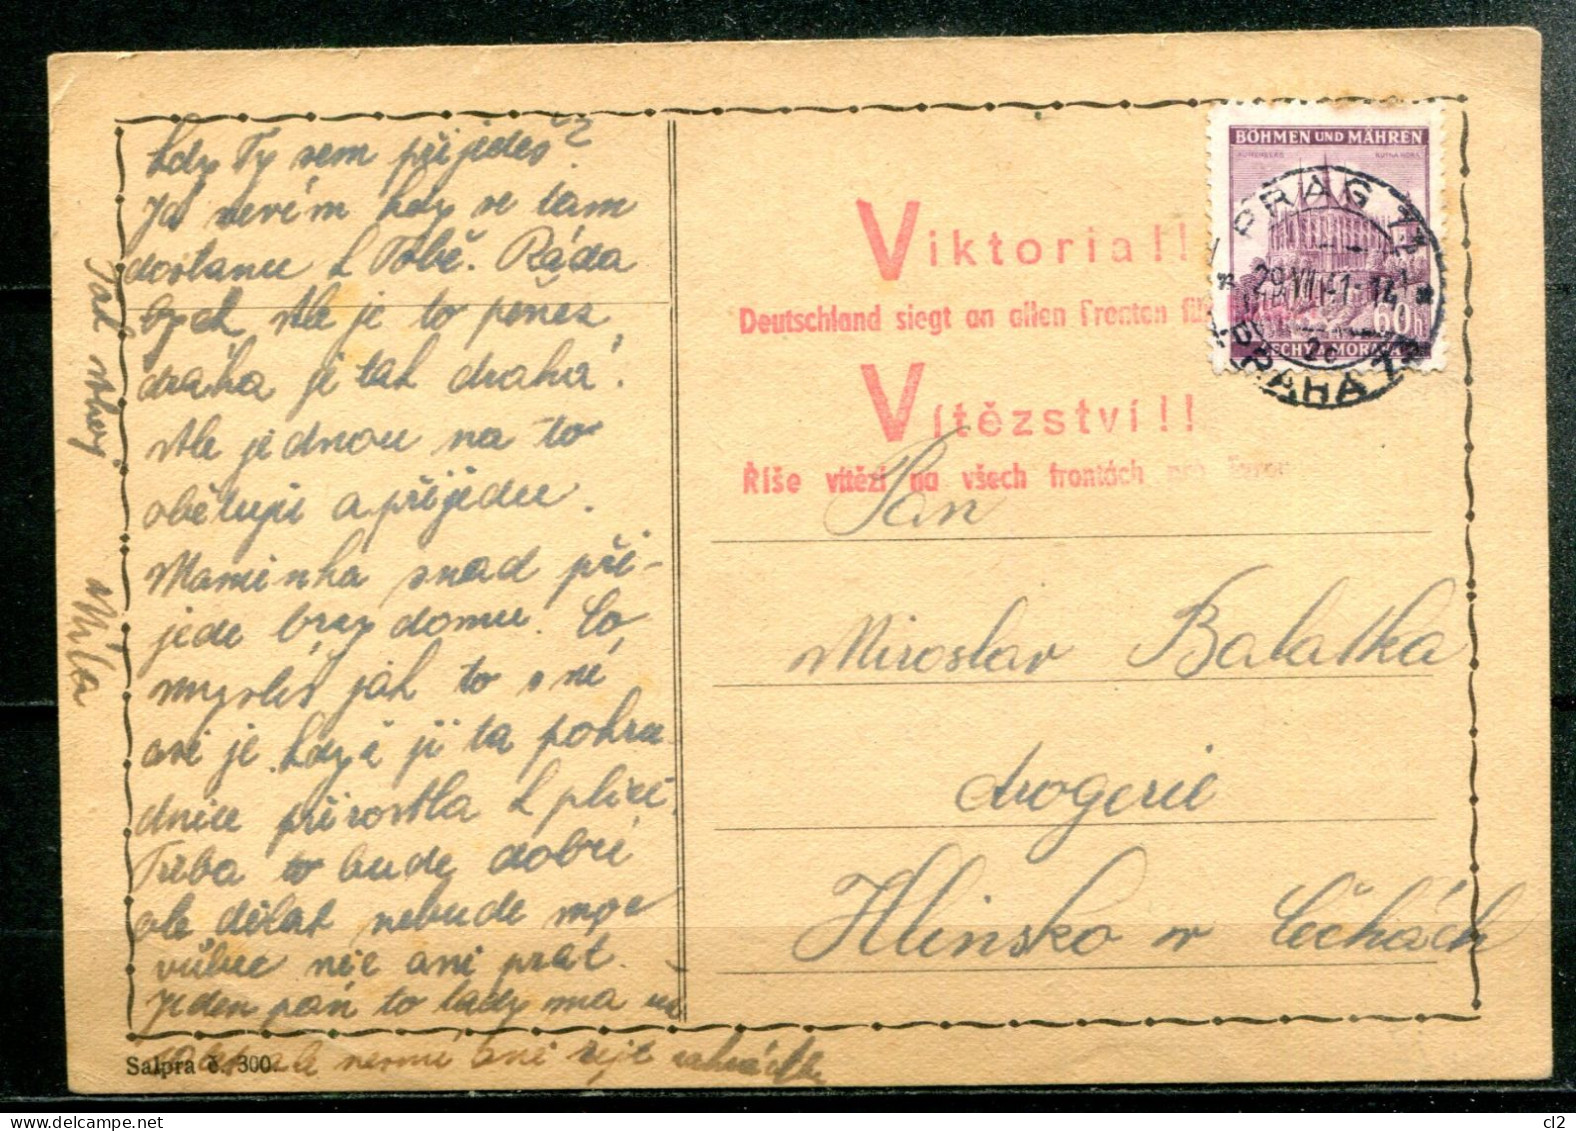 kdy Ty sem přijedeš?
Já nevím kdy se tam
dostanu k Tobě. Ráda
bych ale je to peněz
dráha je tak drahá.
Ale jednou na to
obětuji a přijedu.
Maminka snad při-
jede brzy domu. Co
myslíš jak to s ní
asi je, když jí ta pohru-
dnice přirostla k plíci.
Třeba to bude dobré
ale dělat nebude moc
vůbec nic ani prát.
Jeden pán to tady má
nesmí ani rejt
Tak ahoj
Míla
Salpra č. 300
BÖHMEN UND MÄHREN
KUTNÁ HORA
60h
ČECHY A MORAVA
PRAG 77
29.VII.41-14
2c
PRAHA 77
Viktoria!!
Deutschland siegt an allen Fronten für
Vítězství!!
Říše vítězí na všech frontách pro Evropu
Pan
Miroslav Balatka
drogerie
Hlinsko v Čechách